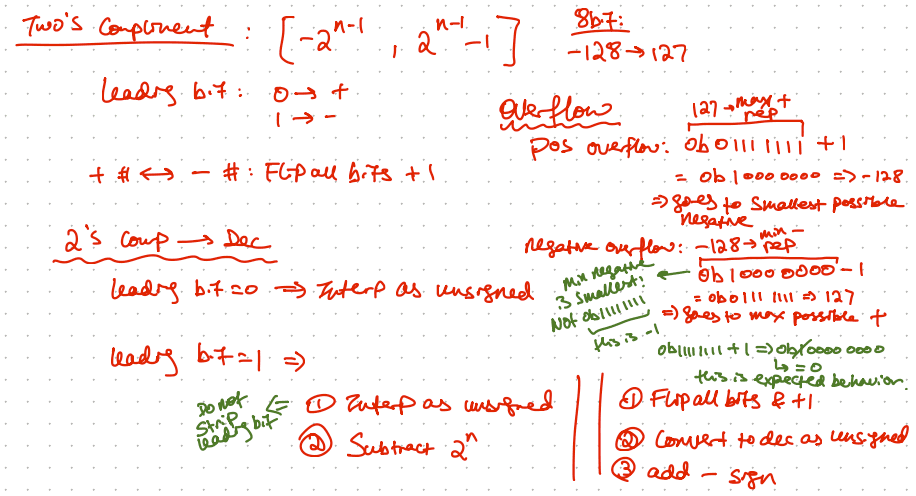 Two's Complement : [-2^{n-1}, 2^{n-1}-1]
8bit:
-128 → 127
leading bit: 0 → +
1 → -
+ # ↔ - #: Flip all bits +1
Overflow
127 → max + rep
pos overflow: 0b01111111 + 1
= 0b10000000 => -128
=> goes to smallest possible
negative
negative overflow: -128 → min - rep
0b10000000 - 1
= 0b01111111 => 127
=> goes to max possible +
min negative
is smallest!
Not 0b11111111
this is -1
0b11111111 + 1 => 0b100000000
↳ = 0
this is expected behavior
2's comp → Dec
leading bit = 0 => Interp as unsigned
leading bit = 1 =>
Do not
strip
leading bit
① Interp as unsigned
② Subtract 2^n
① Flip all bits & +1
② Convert to dec as unsigned
③ add - sign